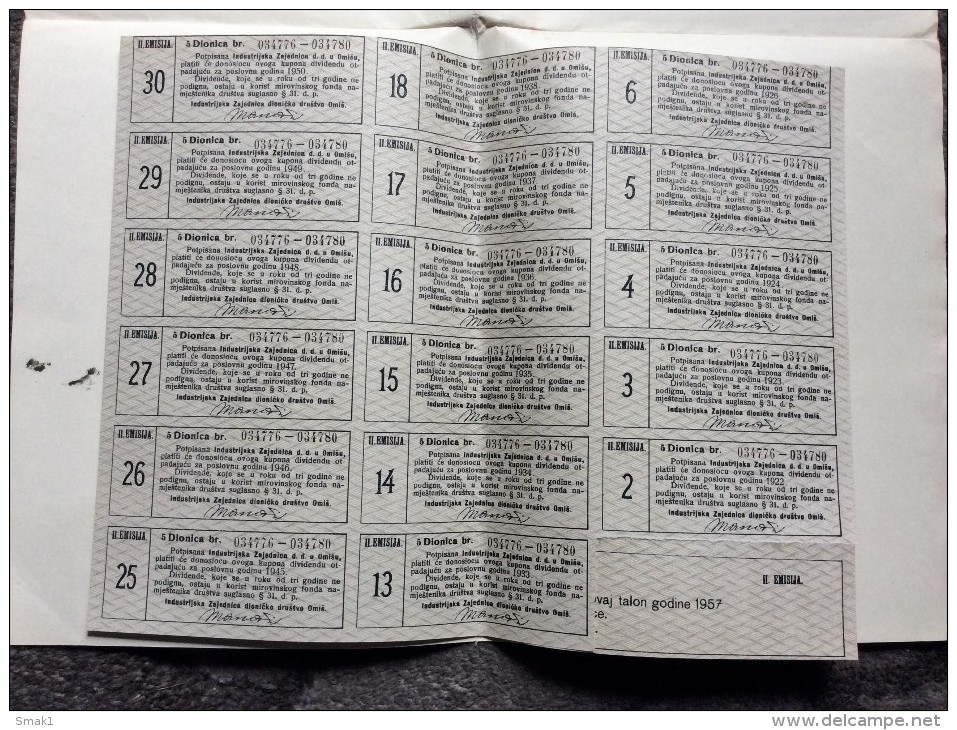 II. EMISIJA.
30
5 Dionica br. 034776—034780
Potpisana Industrijska Zajednica d. d. u Omišu,
platiti će donosiocu ovoga kupona dividendu ot-
padajuću za poslovnu godinu 1950.
Dividende, koje se u roku od tri godine ne
podignu, ostaju u korist mirovinskog fonda na-
mještenika društva suglasno § 31. d. p.
Industrijska Zajednica dioničko društvo Omiš.
II. EMISIJA.
18
5 Dionica br. 034776—034780
Potpisana Industrijska Zajednica d. d. u Omišu,
platiti će donosiocu ovoga kupona dividendu ot-
padajuću za poslovnu godinu 1938.
Dividende, koje se u roku od tri godine ne
podignu, ostaju u korist mirovinskog fonda na-
mještenika društva suglasno § 31. d. p.
Industrijska Zajednica dioničko društvo Omiš.
II. EMISIJA.
6
5 Dionica br. 034776—034780
Potpisana Industrijska Zajednica d. d. u Omišu,
platiti će donosiocu ovoga kupona dividendu ot-
padajuću za poslovnu godinu 1926.
Dividende, koje se u roku od tri godine ne
podignu, ostaju u korist mirovinskog fonda na-
mještenika društva suglasno § 31. d. p.
Industrijska Zajednica dioničko društvo Omiš.
II. EMISIJA.
29
5 Dionica br. 034776—034780
Potpisana Industrijska Zajednica d. d. u Omišu,
platiti će donosiocu ovoga kupona dividendu ot-
padajuću za poslovnu godinu 1949.
Dividende, koje se u roku od tri godine ne
podignu, ostaju u korist mirovinskog fonda na-
mještenika društva suglasno § 31. d. p.
Industrijska Zajednica dioničko društvo Omiš.
II. EMISIJA.
17
5 Dionica br. 034776—034780
Potpisana Industrijska Zajednica d. d. u Omišu,
platiti će donosiocu ovoga kupona dividendu ot-
padajuću za poslovnu godinu 1937.
Dividende, koje se u roku od tri godine ne
podignu, ostaju u korist mirovinskog fonda na-
mještenika društva suglasno § 31. d. p.
Industrijska Zajednica dioničko društvo Omiš.
II. EMISIJA.
5
5 Dionica br. 034776—034780
Potpisana Industrijska Zajednica d. d. u Omišu,
platiti će donosiocu ovoga kupona dividendu ot-
padajuću za poslovnu godinu 1925.
Dividende, koje se u roku od tri godine ne
podignu, ostaju u korist mirovinskog fonda na-
mještenika društva suglasno § 31. d. p.
Industrijska Zajednica dioničko društvo Omiš.
II. EMISIJA.
28
5 Dionica br. 034776—034780
Potpisana Industrijska Zajednica d. d. u Omišu,
platiti će donosiocu ovoga kupona dividendu ot-
padajuću za poslovnu godinu 1948.
Dividende, koje se u roku od tri godine ne
podignu, ostaju u korist mirovinskog fonda na-
mještenika društva suglasno § 31. d. p.
Industrijska Zajednica dioničko društvo Omiš.
II. EMISIJA.
16
5 Dionica br. 034776—034780
Potpisana Industrijska Zajednica d. d. u Omišu,
platiti će donosiocu ovoga kupona dividendu ot-
padajuću za poslovnu godinu 1936.
Dividende, koje se u roku od tri godine ne
podignu, ostaju u korist mirovinskog fonda na-
mještenika društva suglasno § 31. d. p.
Industrijska Zajednica dioničko društvo Omiš.
II. EMISIJA.
4
5 Dionica br. 034776—034780
Potpisana Industrijska Zajednica d. d. u Omišu,
platiti će donosiocu ovoga kupona dividendu ot-
padajuću za poslovnu godinu 1924.
Dividende, koje se u roku od tri godine ne
podignu, ostaju u korist mirovinskog fonda na-
mještenika društva suglasno § 31. d. p.
Industrijska Zajednica dioničko društvo Omiš.
II. EMISIJA.
27
5 Dionica br. 034776—034780
Potpisana Industrijska Zajednica d. d. u Omišu,
platiti će donosiocu ovoga kupona dividendu ot-
padajuću za poslovnu godinu 1947.
Dividende, koje se u roku od tri godine ne
podignu, ostaju u korist mirovinskog fonda na-
mještenika društva suglasno § 31. d. p.
Industrijska Zajednica dioničko društvo Omiš.
II. EMISIJA.
15
5 Dionica br. 034776—034780
Potpisana Industrijska Zajednica d. d. u Omišu,
platiti će donosiocu ovoga kupona dividendu ot-
padajuću za poslovnu godinu 1935.
Dividende, koje se u roku od tri godine ne
podignu, ostaju u korist mirovinskog fonda na-
mještenika društva suglasno § 31. d. p.
Industrijska Zajednica dioničko društvo Omiš.
II. EMISIJA.
3
5 Dionica br. 034776—034780
Potpisana Industrijska Zajednica d. d. u Omišu,
platiti će donosiocu ovoga kupona dividendu ot-
padajuću za poslovnu godinu 1923.
Dividende, koje se u roku od tri godine ne
podignu, ostaju u korist mirovinskog fonda na-
mještenika društva suglasno § 31. d. p.
Industrijska Zajednica dioničko društvo Omiš.
II. EMISIJA.
26
5 Dionica br. 034776—034780
Potpisana Industrijska Zajednica d. d. u Omišu,
platiti će donosiocu ovoga kupona dividendu ot-
padajuću za poslovnu godinu 1946.
Dividende, koje se u roku od tri godine ne
podignu, ostaju u korist mirovinskog fonda na-
mještenika društva suglasno § 31. d. p.
Industrijska Zajednica dioničko društvo Omiš.
II. EMISIJA.
14
5 Dionica br. 034776—034780
Potpisana Industrijska Zajednica d. d. u Omišu,
platiti će donosiocu ovoga kupona dividendu ot-
padajuću za poslovnu godinu 1934.
Dividende, koje se u roku od tri godine ne
podignu, ostaju u korist mirovinskog fonda na-
mještenika društva suglasno § 31. d. p.
Industrijska Zajednica dioničko društvo Omiš.
II. EMISIJA.
2
5 Dionica br. 034776—034780
Potpisana Industrijska Zajednica d. d. u Omišu,
platiti će donosiocu ovoga kupona dividendu ot-
padajuću za poslovnu godinu 1922.
Dividende, koje se u roku od tri godine ne
podignu, ostaju u korist mirovinskog fonda na-
mještenika društva suglasno § 31. d. p.
Industrijska Zajednica dioničko društvo Omiš.
II. EMISIJA.
25
5 Dionica br. 034776—034780
Potpisana Industrijska Zajednica d. d. u Omišu,
platiti će donosiocu ovoga kupona dividendu ot-
padajuću za poslovnu godinu 1945.
Dividende, koje se u roku od tri godine ne
podignu, ostaju u korist mirovinskog fonda na-
mještenika društva suglasno § 31. d. p.
Industrijska Zajednica dioničko društvo Omiš.
II. EMISIJA.
13
5 Dionica br. 034776—034780
Potpisana Industrijska Zajednica d. d. u Omišu,
platiti će donosiocu ovoga kupona dividendu ot-
padajuću za poslovnu godinu 1933.
Dividende, koje se u roku od tri godine ne
podignu, ostaju u korist mirovinskog fonda na-
mještenika društva suglasno § 31. d. p.
Industrijska Zajednica dioničko društvo Omiš.
II. EMISIJA.
ovaj talon godine 1957
ce.
Smak1
www.delcampe.net